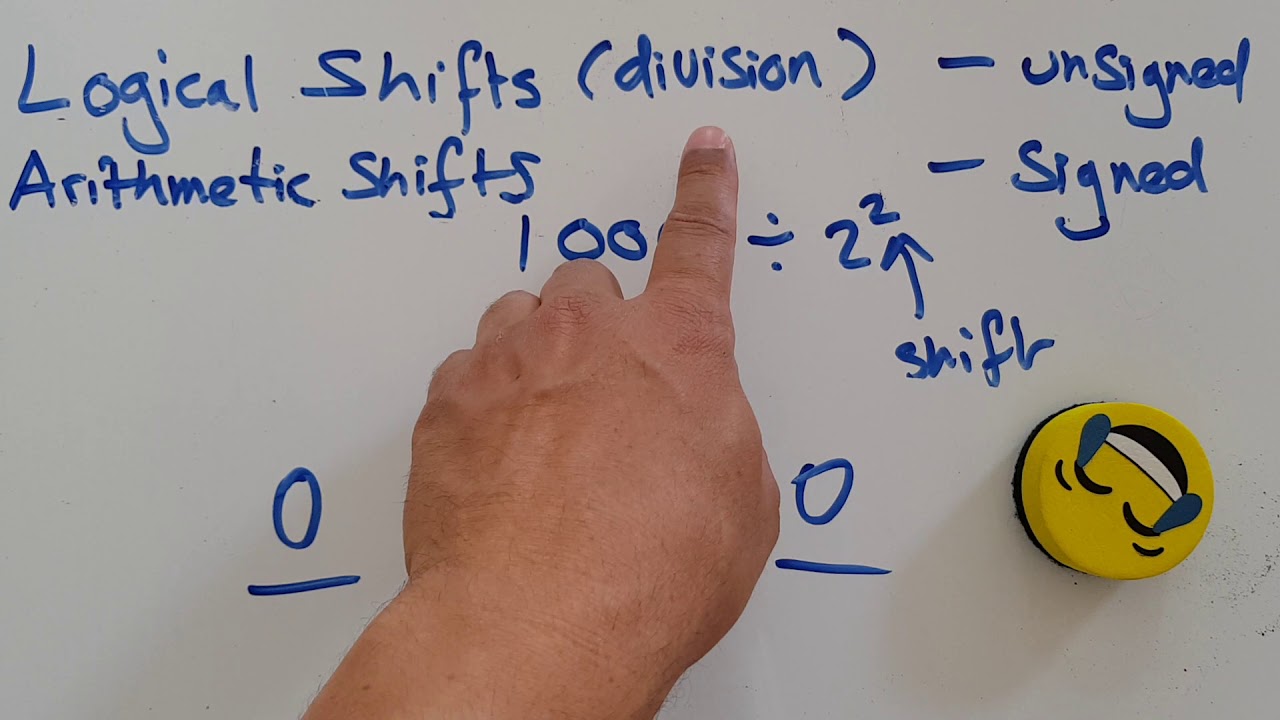 Logical Shifts (division) - unsigned
Arithmetic Shifts - Signed
100 ÷ 2²
shift
0 0